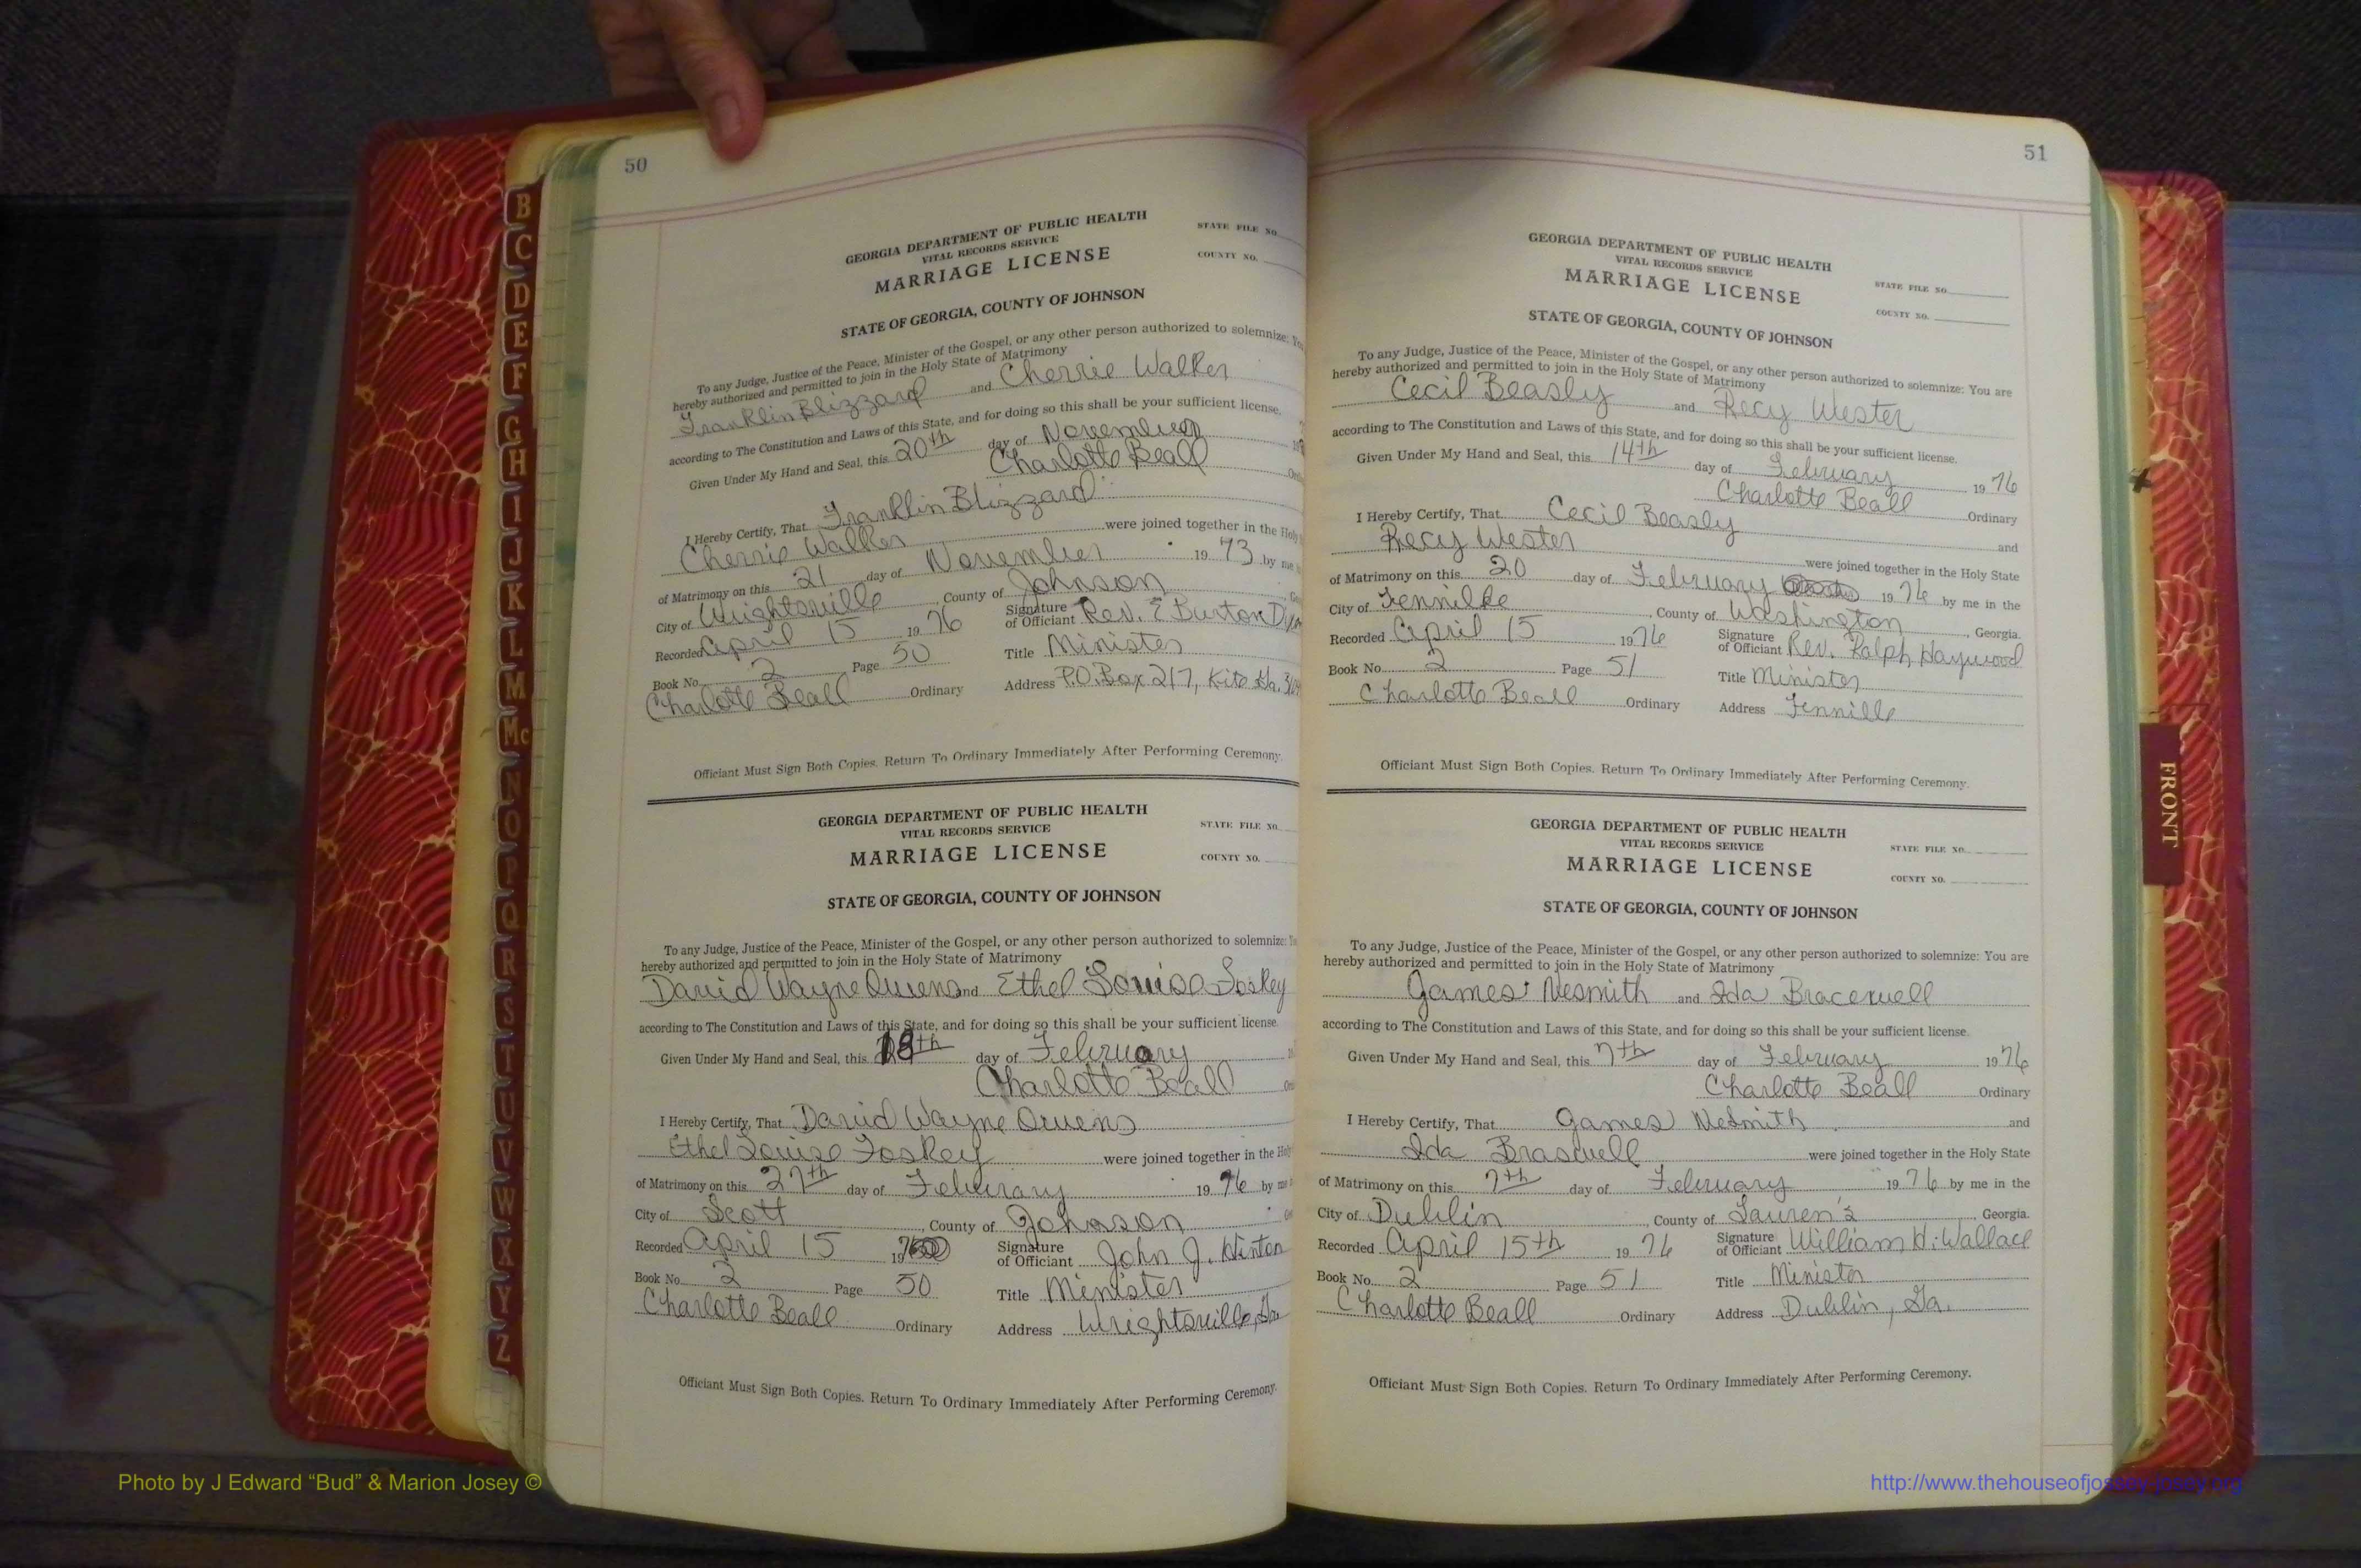 50
GEORGIA DEPARTMENT OF PUBLIC HEALTH
VITAL RECORDS SERVICE
MARRIAGE LICENSE
STATE FILE NO.
COUNTY NO.
STATE OF GEORGIA, COUNTY OF JOHNSON
To any Judge, Justice of the Peace, Minister of the Gospel, or any other person authorized to solemnize:
hereby authorized and permitted to join in the Holy State of Matrimony
Franklin Blizzard and Cherrie Walker
according to The Constitution and Laws of this State, and for doing so this shall be your sufficient license.
Given Under My Hand and Seal, this 20th day of November
Charlotte Beall
I Hereby Certify, That Franklin Blizzard
Cherrie Walker were joined together in the Holy
of Matrimony on this 21 day of November 1973 by me
City of Wrightsville, County of Johnson
Recorded April 15 1976 Signature of Officiant Rev. E Burton
Book No. 2 Page 50 Title Minister
Charlotte Beall Ordinary Address P.O. Box 217, Kite Ga.
Officiant Must Sign Both Copies. Return To Ordinary Immediately After Performing Ceremony.
GEORGIA DEPARTMENT OF PUBLIC HEALTH
VITAL RECORDS SERVICE
MARRIAGE LICENSE
STATE FILE NO.
COUNTY NO.
STATE OF GEORGIA, COUNTY OF JOHNSON
To any Judge, Justice of the Peace, Minister of the Gospel, or any other person authorized to solemnize:
hereby authorized and permitted to join in the Holy State of Matrimony
David Wayne Owens and Ethel Louise Foskey
according to The Constitution and Laws of this State, and for doing so this shall be your sufficient license.
Given Under My Hand and Seal, this day of February
Charlotte Beall
I Hereby Certify, That David Wayne Owens
Ethel Louise Foskey were joined together in the Holy
of Matrimony on this 27th day of February 1976 by me
City of Scott, County of Johnson
Recorded April 15 19 Signature of Officiant John J. Hinton
Book No. 2 Page 50 Title Minister
Charlotte Beall Ordinary Address Wrightsville, Ga
Officiant Must Sign Both Copies. Return To Ordinary Immediately After Performing Ceremony.
51
GEORGIA DEPARTMENT OF PUBLIC HEALTH
VITAL RECORDS SERVICE
MARRIAGE LICENSE
STATE FILE NO.
COUNTY NO.
STATE OF GEORGIA, COUNTY OF JOHNSON
To any Judge, Justice of the Peace, Minister of the Gospel, or any other person authorized to solemnize: You are
hereby authorized and permitted to join in the Holy State of Matrimony
Cecil Beasly and Recy Wester
according to The Constitution and Laws of this State, and for doing so this shall be your sufficient license.
Given Under My Hand and Seal, this 14th day of February 1976
Charlotte Beall Ordinary
I Hereby Certify, That Cecil Beasly and
Recy Wester were joined together in the Holy State
of Matrimony on this 20 day of February 1976 by me in the
City of Tennille, County of Washington, Georgia.
Recorded April 15 1976 Signature of Officiant Rev. Ralph Haywood
Book No. 2 Page 51 Title Minister
Charlotte Beall Ordinary Address Tennille
Officiant Must Sign Both Copies. Return To Ordinary Immediately After Performing Ceremony.
GEORGIA DEPARTMENT OF PUBLIC HEALTH
VITAL RECORDS SERVICE
MARRIAGE LICENSE
STATE FILE NO.
COUNTY NO.
STATE OF GEORGIA, COUNTY OF JOHNSON
To any Judge, Justice of the Peace, Minister of the Gospel, or any other person authorized to solemnize: You are
hereby authorized and permitted to join in the Holy State of Matrimony
James Nesmith and Ida Bracewell
according to The Constitution and Laws of this State, and for doing so this shall be your sufficient license.
Given Under My Hand and Seal, this 7th day of February 1976
Charlotte Beall Ordinary
I Hereby Certify, That James NeSmith and
Ida Braswell were joined together in the Holy State
of Matrimony on this 7th day of February 1976 by me in the
City of Dublin, County of Lauren's Georgia.
Recorded April 15th 1976 Signature of Officiant William H. Wallace
Book No. 2 Page 51 Title Minister
Charlotte Beall Ordinary Address Dublin, Ga.
Officiant Must Sign Both Copies. Return To Ordinary Immediately After Performing Ceremony.
B
C
D
E
F
G
H
I
J
K
L
M
Mc
N
O
P
Q
R
S
T
U
V
W
X
Y
Z
FRONT
Photo by J Edward “Bud” & Marion Josey ©
http://www.thehouseofjossey-josey.org